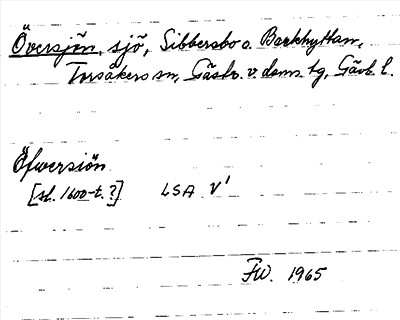 Översjön, sjö, Sibbersbo o. Barkhyttan,
Torsåkers sn, Gästr. v. doms. tg, Gävl. l.
Öfwersiön
[sl. 1600-t.?] LSA V¹
FW. 1965